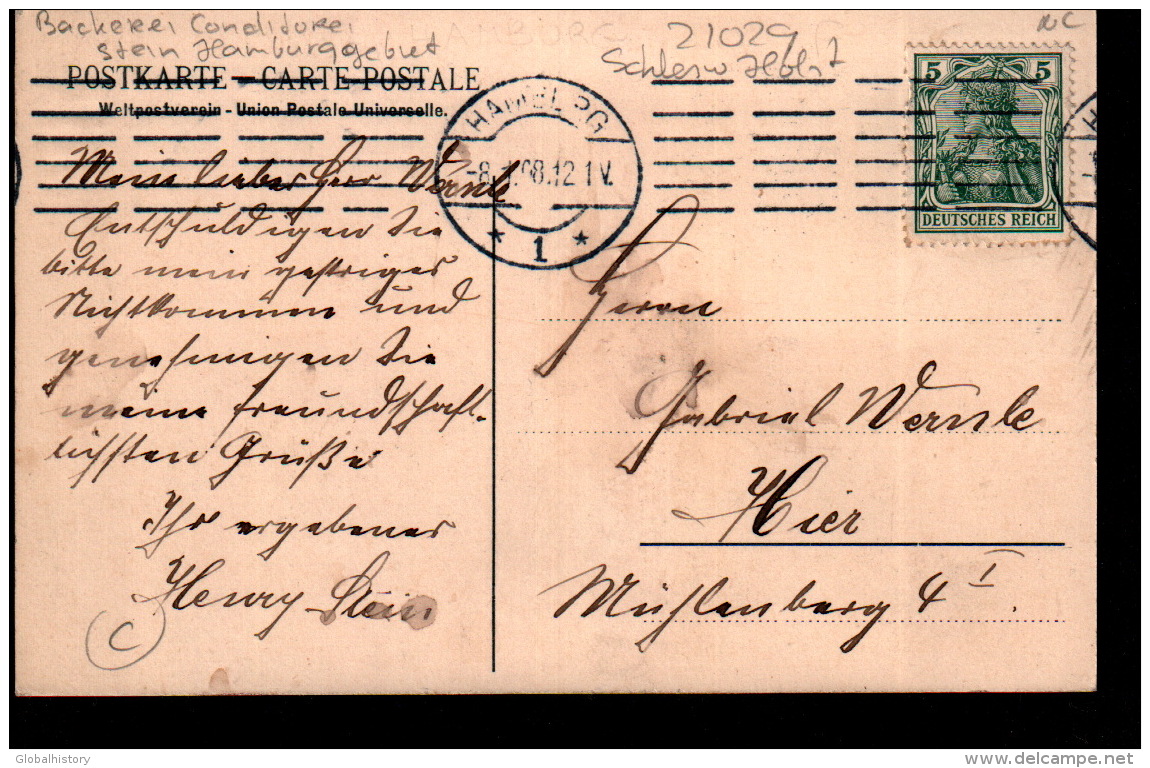 Backerei Conditorei
Stein Hamburggebiet
21029
Schlesw Holst
NC
POSTKARTE – CARTE POSTALE
Weltpostverein - Union Postale Universelle.
HAMBURG
-8. 08.12 1 V.
* 1 *
5 5
DEUTSCHES REICH
Mein lieber Herr Wernle
Entschuldigen Sie
bitte mein gestriges
Nichtkommen und
genehmigen Sie
meine freundschaft-
lichsten Grüße
Ihr ergebener
Henry Stein
C
Herrn
Gabriel Wernle
Hier
Mühlenberg 4 I.
Globalhistory
www.delcampe.net